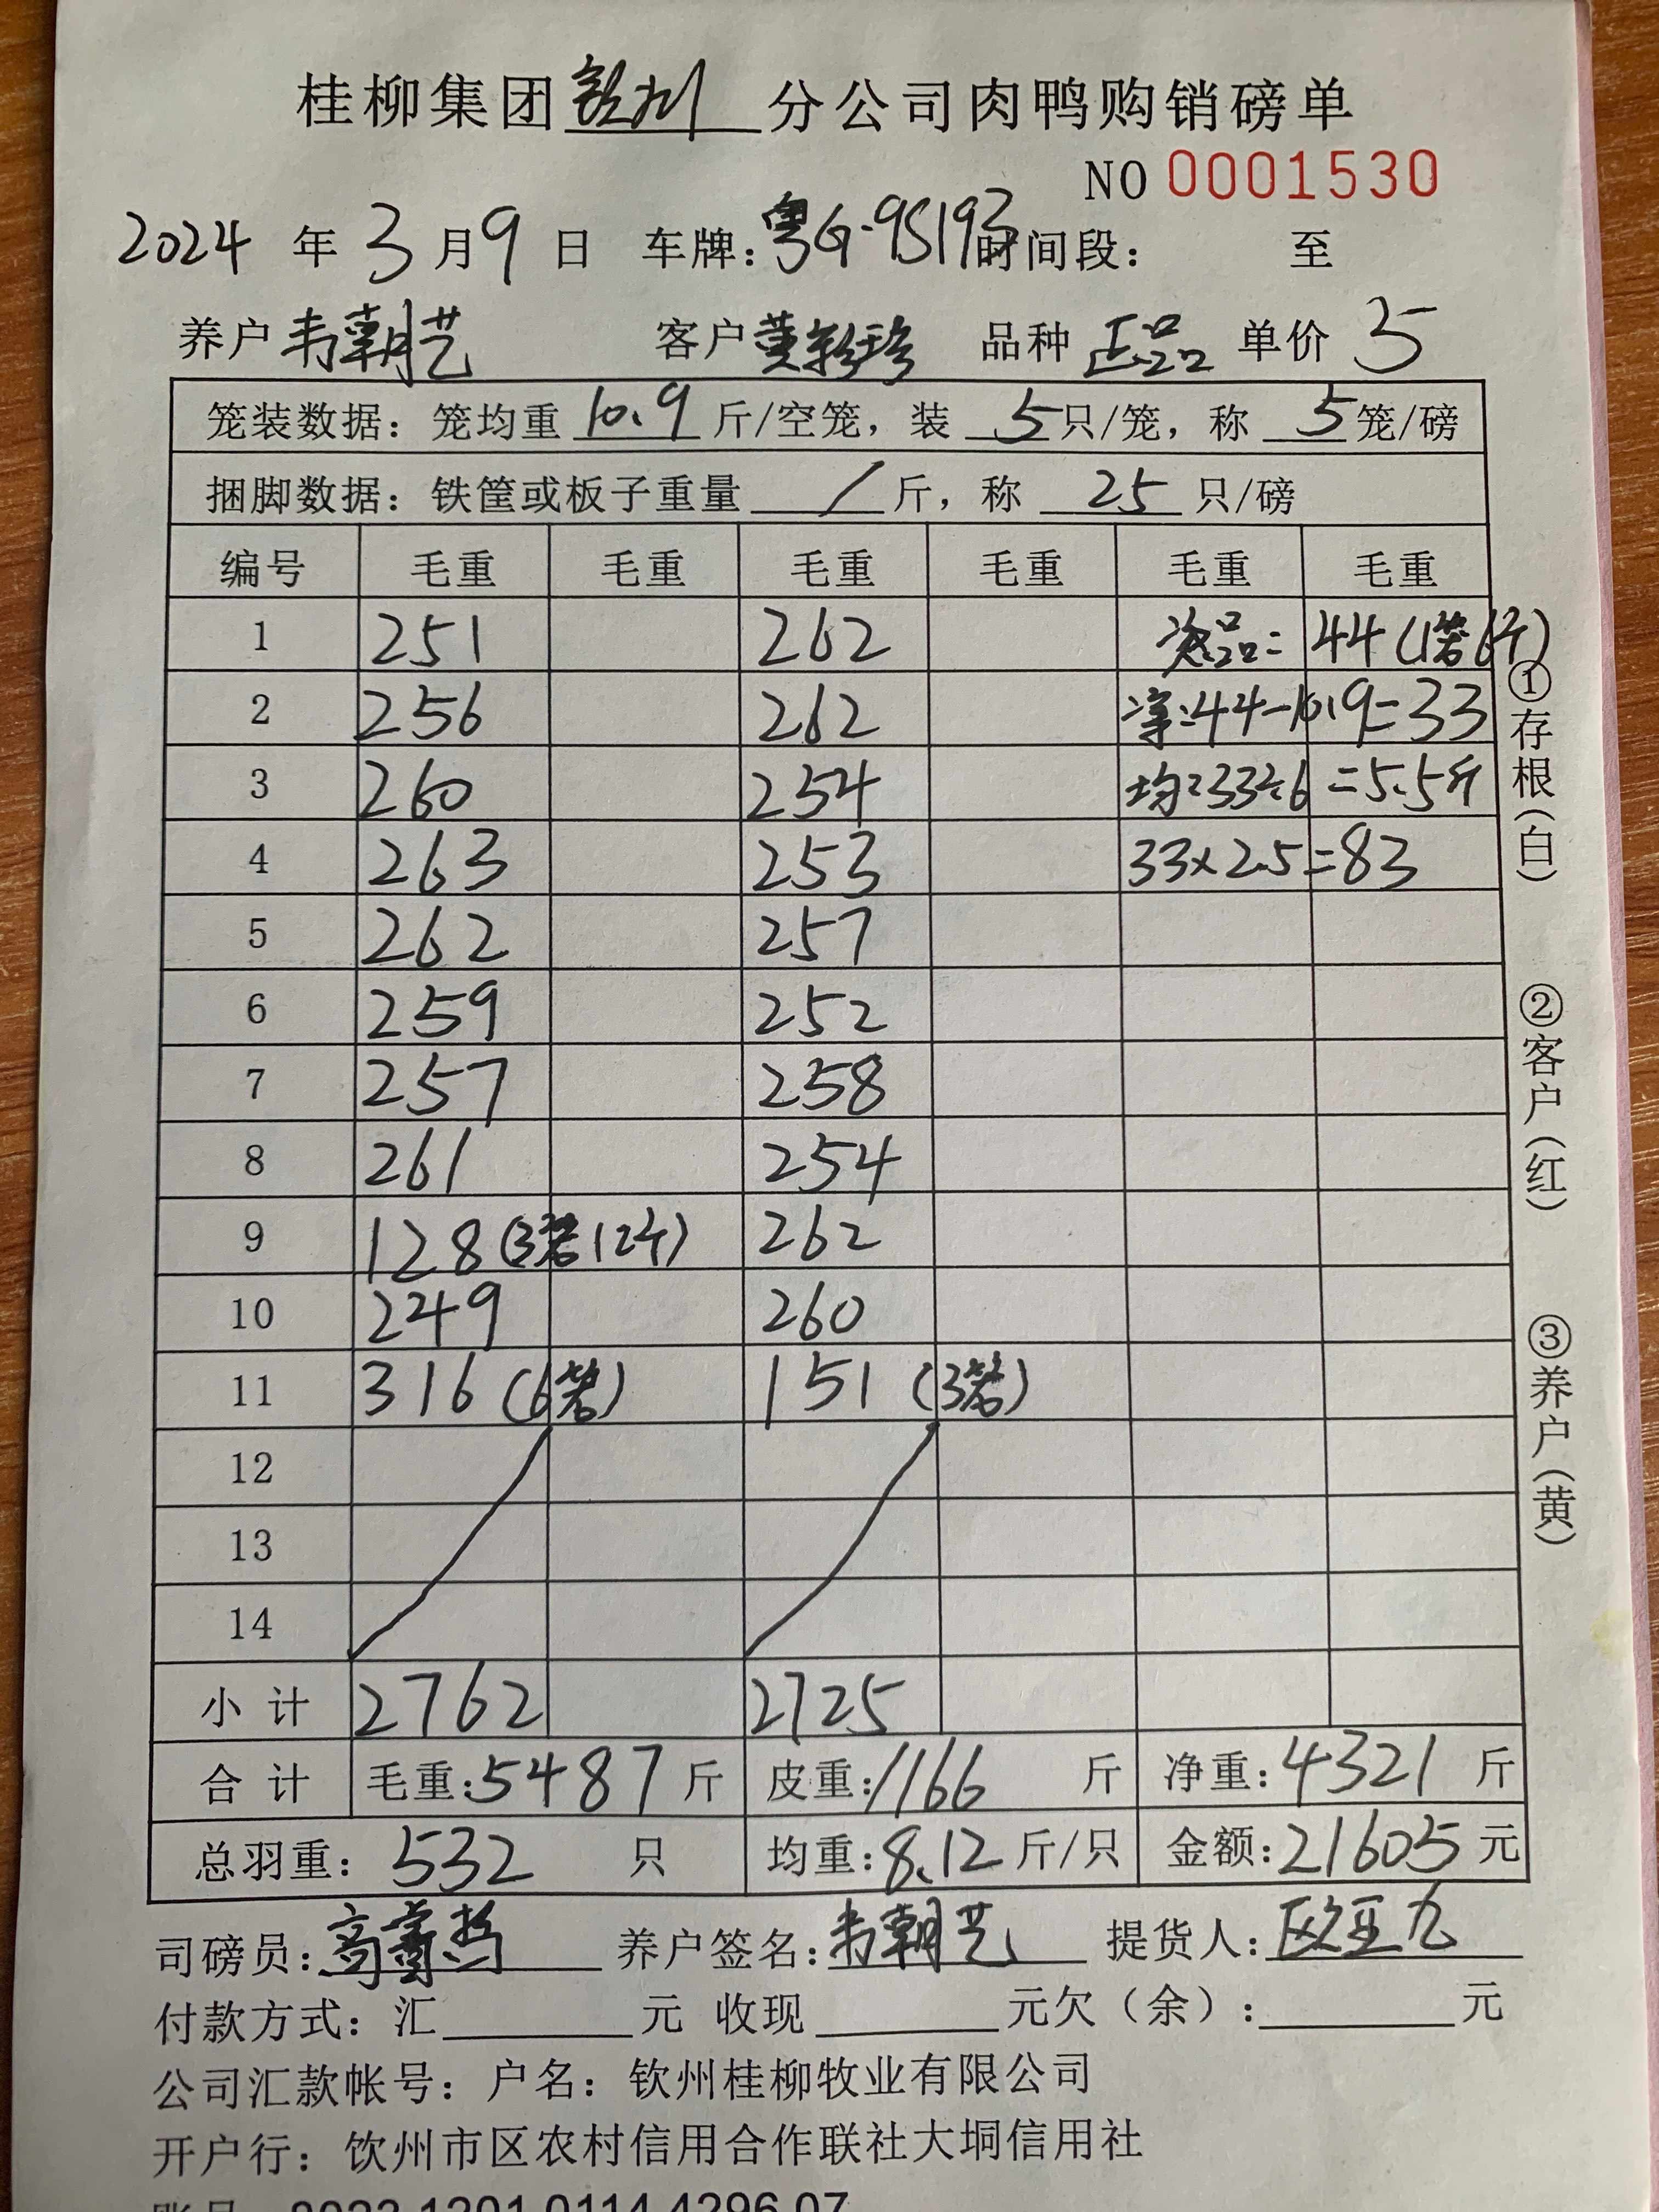 桂柳集团钦州分公司肉鸭购销磅单
NO 0001530
2024 年 3 月 9 日 车牌：粤G·9S193 时间段： 至
养户 韦朝艺 客户 黄彩珍 品种 正品 单价 5
笼装数据：笼均重 10.9 斤/空笼，装 5 只/笼，称 5 笼/磅
捆脚数据：铁筐或板子重量 / 斤，称 25 只/磅
编号 毛重 毛重 毛重 毛重 毛重 毛重
1 251 262 次品: 44(1笼6斤)
2 256 262 净:44-10.9=33
3 260 254 均:33÷6=5.5斤
4 263 253 33×2.5=83
5 262 257
6 259 252
7 257 258
8 261 254
9 128(3笼12斤) 262
10 249 260
11 316(6笼) 151(3笼)
12
13
14
小计 2762 2725
合计 毛重：5487 斤 皮重：1166 斤 净重：4321 斤
总羽重： 532 只 均重：8.12 斤/只 金额：21605 元
司磅员： 养户签名：韦朝艺 提货人：欧亚九
付款方式：汇 元 收现 元欠（余）： 元
公司汇款帐号：户名：钦州桂柳牧业有限公司
开户行：钦州市区农村信用合作联社大垌信用社
①存根（白）
②客户（红）
③养户（黄）